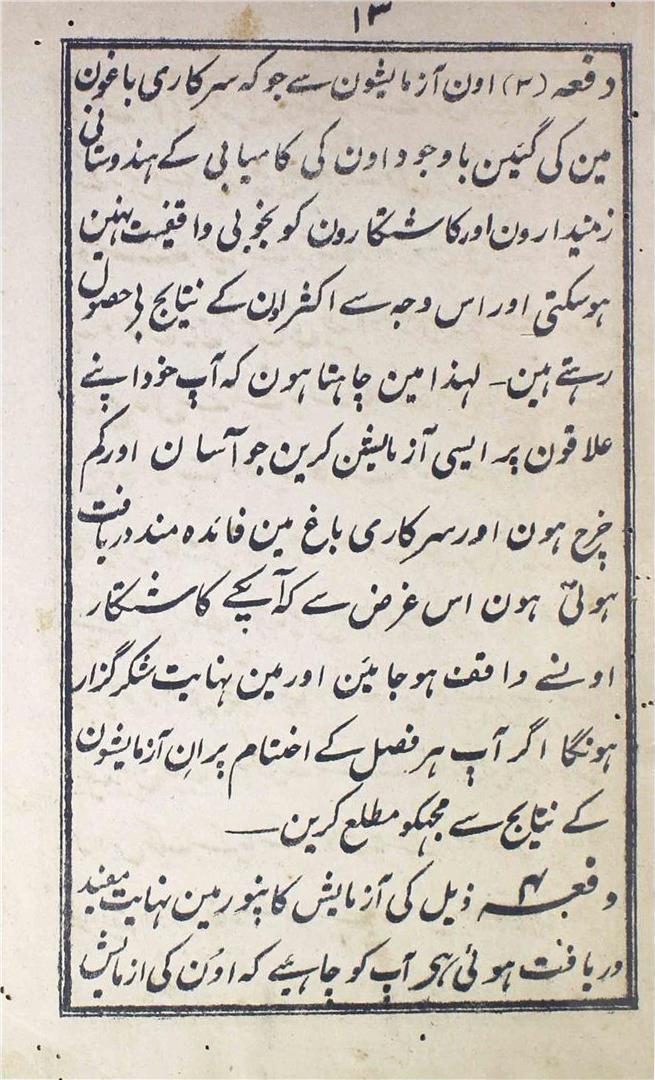 ۱۳
دفعہ (۳) اون آزمایشون سے جو کہ سرکاری باغون
مین کی گئین باوجود اون کی کامیابی کے ہندوستانی
زمیندارون اور کاشتکارون کو بخوبی واقفیت نہین
ہوسکتی اور اس وجہ سے اکثر اون کے نتایج بی حصول
رہتے ہین۔ لہذا مین چاہتا ہون کہ آپ خود اپنے
علاقون پر ایسی آزمایش کرین جو آسان اور کم
خرچ ہون اور سرکاری باغ مین فائدہ مند دریافت
ہوئی ہون اس غرض سے کہ آپکے کاشتکار
اونسے واقف ہوجائین اور مین نہایت شکرگزار
ہونگا اگر آپ ہر فصل کے اختتام پر ان آزمایشون
کے نتایج سے مجہکو مطلع کرین ــ
دفعہ ۴ ذیل کی آزمایش کانپور مین نہایت مفید
دریافت ہوئی ہی آپ کو چاہیئے کہ اون کی ازمایش